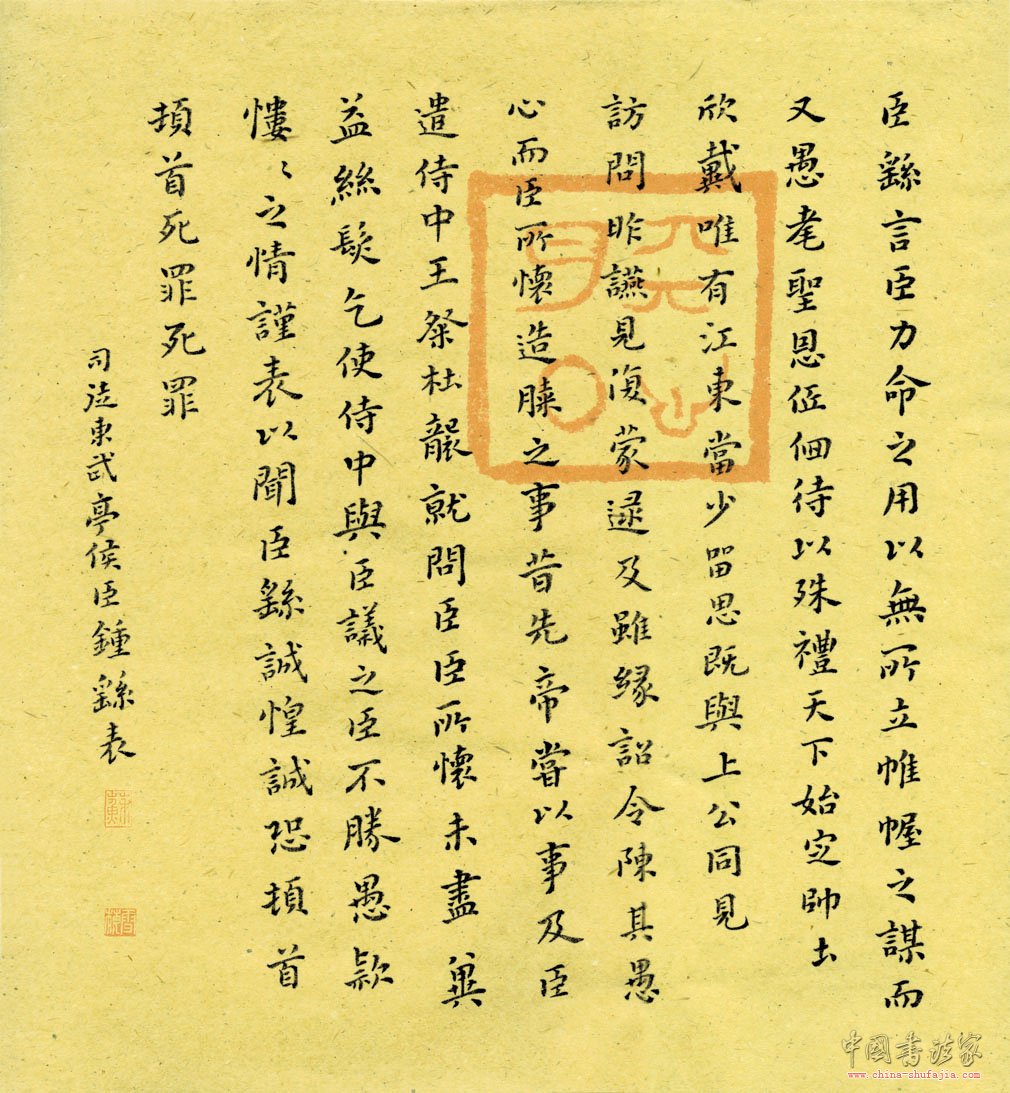 臣繇言臣力命之用以無所立帷幄之謀而
又愚耄聖恩低佪待以殊禮天下始定帥土
欣戴唯有江東當少留思既與上公同見
訪問昨讌見復蒙逮及雖緣詔令陳其愚
心而臣所懷造膝之事昔先帝嘗以事及臣
遣侍中王粲杜襲就問臣臣所懷未盡冀
益絲髮乞使侍中與臣議之臣不勝愚款
慺〻之情謹表以聞臣繇誠惶誠恐頓首
頓首死罪死罪
司徒東武亭侯臣鍾繇表
中国书法家
www.china-shufajia.com